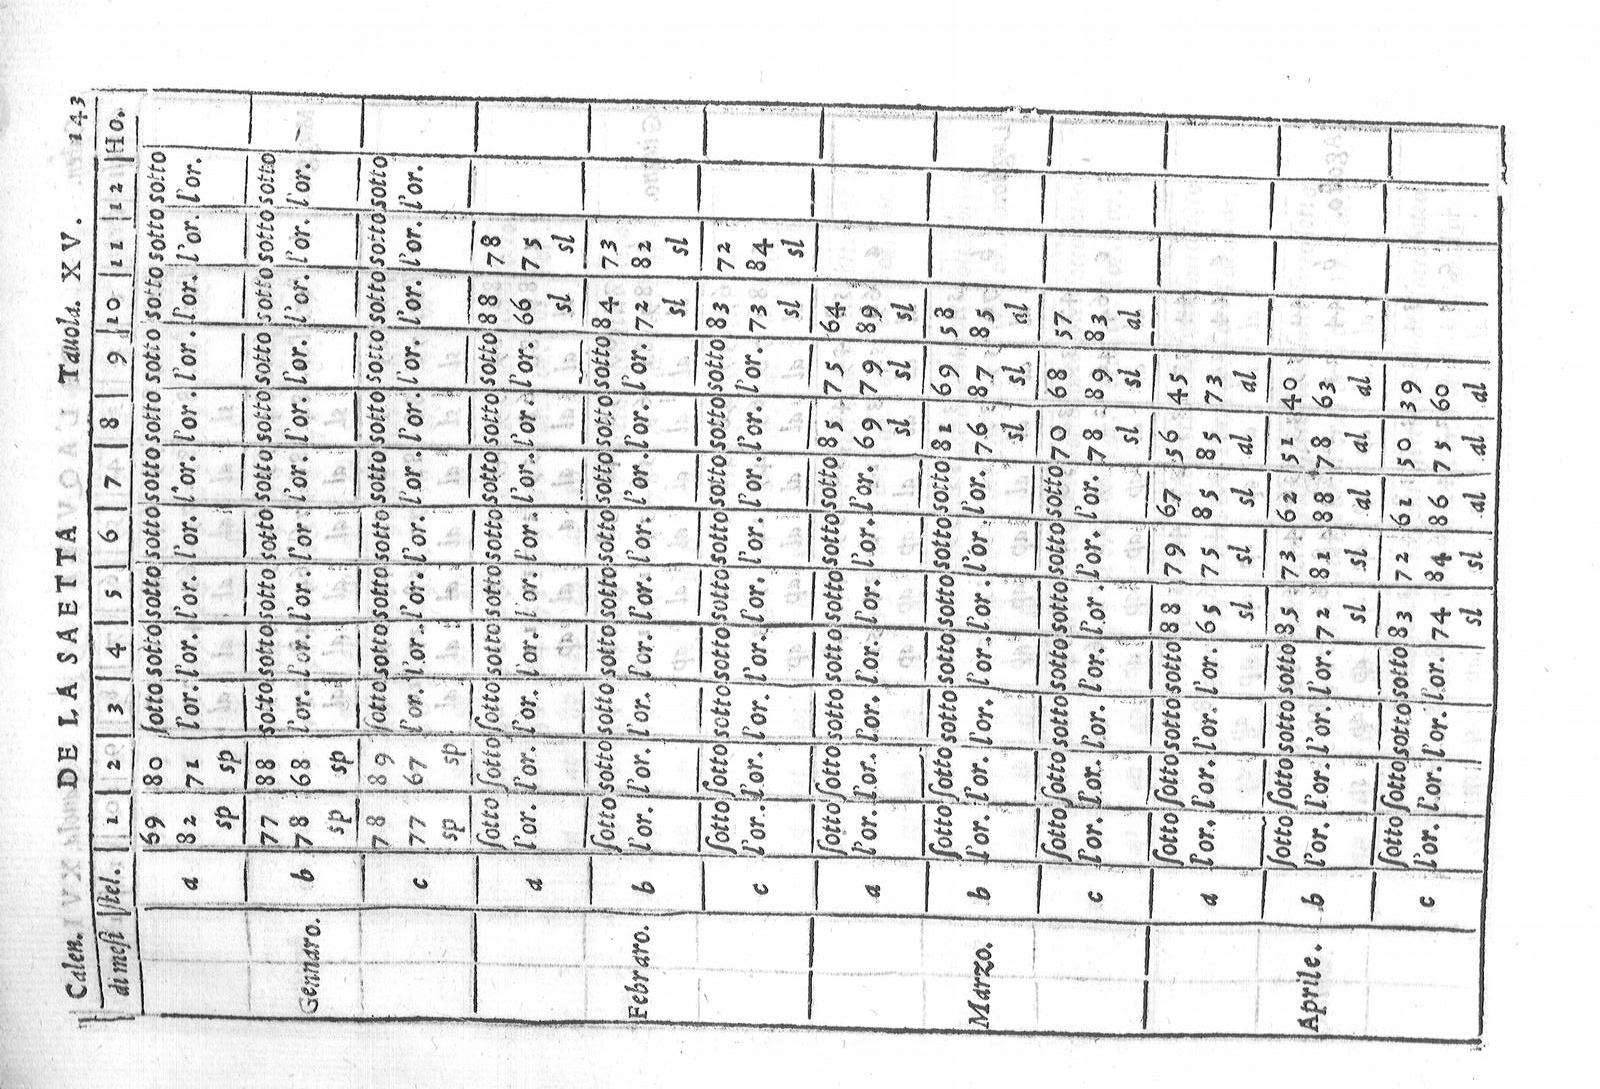 Calen. DE LA SAETTA Tauola. XV. 143
di mesi stel. 1 2 3 4 5 6 7 8 9 10 11 12 Ho.
69 80 sotto sotto sotto sotto sotto sotto sotto sotto sotto sotto
a 82 71 l'or. l'or. l'or. l'or. l'or. l'or. l'or. l'or. l'or. l'or.
sp sp
77 88 sotto sotto sotto sotto sotto sotto sotto sotto sotto sotto
Gennaro. b 78 68 l'or. l'or. l'or. l'or. l'or. l'or. l'or. l'or. l'or. l'or.
sp sp
78 89 sotto sotto sotto sotto sotto sotto sotto sotto sotto sotto
c 77 67 l'or. l'or. l'or. l'or. l'or. l'or. l'or. l'or. l'or. l'or.
sp sp
sotto sotto sotto sotto sotto sotto sotto sotto sotto 88 78
a l'or. l'or. l'or. l'or. l'or. l'or. l'or. l'or. l'or. 66 75
sl sl
sotto sotto sotto sotto sotto sotto sotto sotto sotto 84 73
Febraro. b l'or. l'or. l'or. l'or. l'or. l'or. l'or. l'or. l'or. 72 82
sl sl
sotto sotto sotto sotto sotto sotto sotto sotto sotto 83 72
c l'or. l'or. l'or. l'or. l'or. l'or. l'or. l'or. l'or. 73 84
sl sl
sotto sotto sotto sotto sotto sotto sotto 85 75 64
a l'or. l'or. l'or. l'or. l'or. l'or. l'or. 69 79 89
sl sl sl
sotto sotto sotto sotto sotto sotto sotto 81 69 58
Marzo. b l'or. l'or. l'or. l'or. l'or. l'or. l'or. 76 87 85
sl sl al
sotto sotto sotto sotto sotto sotto sotto 70 68 57
c l'or. l'or. l'or. l'or. l'or. l'or. l'or. 78 89 83
sl sl al
sotto sotto sotto sotto 88 79 67 56 45
a l'or. l'or. l'or. l'or. 65 75 85 85 73
sl sl sl al al
sotto sotto sotto sotto 85 73 62 51 40
Aprile. b l'or. l'or. l'or. l'or. 72 81 88 78 63
sl sl al al al
sotto sotto sotto sotto 83 72 61 50 39
c l'or. l'or. l'or. l'or. 74 84 86 75 60
sl sl al al al